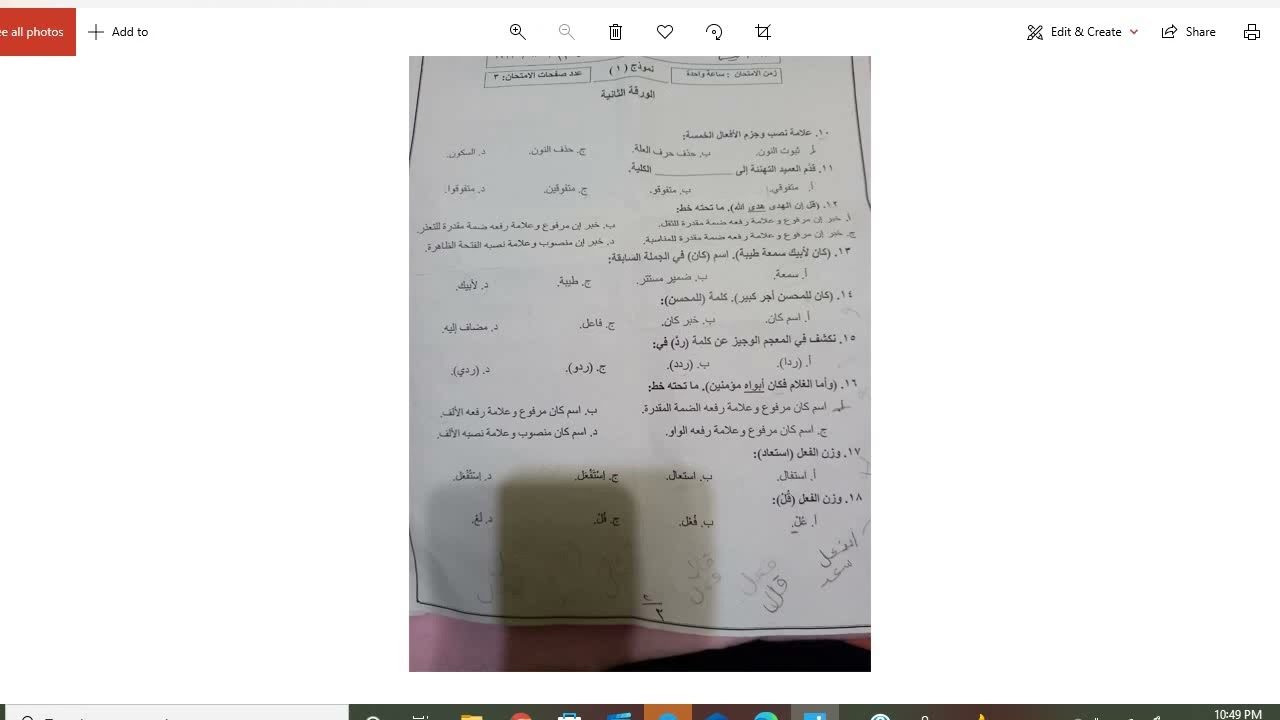 See all photos
Add to
Edit & Create
Share
زمن الامتحان : ساعة واحدة
نموذج (١)
عدد صفحات الامتحان: ٣
الورقة الثانية
١٠. علامة نصب وجزم الأفعال الخمسة:
أ. ثبوت النون. ب. حذف حرف العلة. ج. حذف النون. د. السكون.
١١. قدّم العميد التهنئة إلى ____________ الكلية.
أ. متفوقي. ب. متفوقو. ج. متفوقين. د. متفوقوا.
١٢. (قل إن الهدى هدى الله). ما تحته خط:
أ. خبر إن مرفوع وعلامة رفعه ضمة مقدرة للثقل. ب. خبر إن مرفوع وعلامة رفعه ضمة مقدرة للتعذر.
ج. خبر إن مرفوع وعلامة رفعه ضمة مقدرة للمناسبة. د. خبر إن منصوب وعلامة نصبه الفتحة الظاهرة.
١٣. (كان لأبيك سمعة طيبة). اسم (كان) في الجملة السابقة:
أ. سمعة. ب. ضمير مستتر. ج. طيبة. د. لأبيك.
١٤. (كان للمحسن أجر كبير). كلمة (للمحسن):
أ. اسم كان. ب. خبر كان. ج. فاعل. د. مضاف إليه.
١٥. نكشف في المعجم الوجيز عن كلمة (ردّ) في:
أ. (ردا). ب. (ردد). ج. (ردو). د. (ردي).
١٦. (وأما الغلام فكان أبواه مؤمنين). ما تحته خط:
أ. اسم كان مرفوع وعلامة رفعه الضمة المقدرة. ب. اسم كان مرفوع وعلامة رفعه الألف.
ج. اسم كان مرفوع وعلامة رفعه الواو. د. اسم كان منصوب وعلامة نصبه الألف.
١٧. وزن الفعل (استعاد):
أ. استفال. ب. استعال. ج. إسْتَفْعَل. د. إسْتَفْعل.
١٨. وزن الفعل (قُلْ):
أ. عُلْ. ب. فُعْل. ج. فُلْ. د. لُغ.
٢
٣
10:49 PM